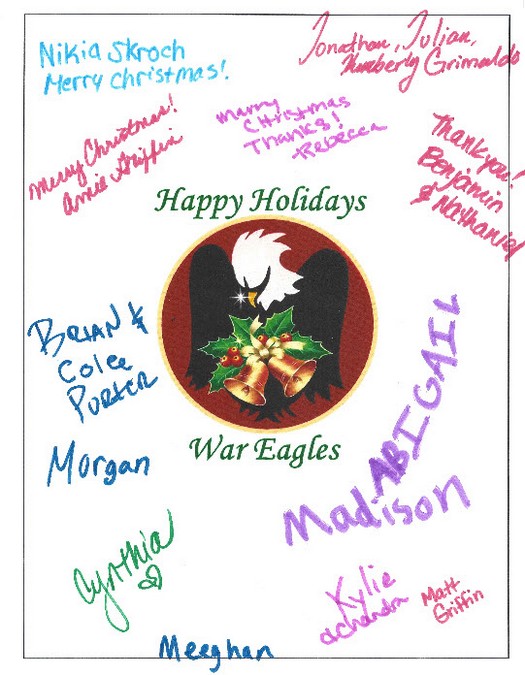 Nikia Skroch
Merry Christmas!
Jonathan, Julian,
Kimberly Grimaldo
Merry Christmas!
Amie Griffin
Merry
Christmas
Thanks!
Rebecca
Thank you!
Benjamin
& Nathaniel
Happy Holidays
Brian &
Colee
Porter
ABIGAIL
War Eagles
Morgan
Madison
Cynthia
Kylie
Matt
Griffin
Meeghan